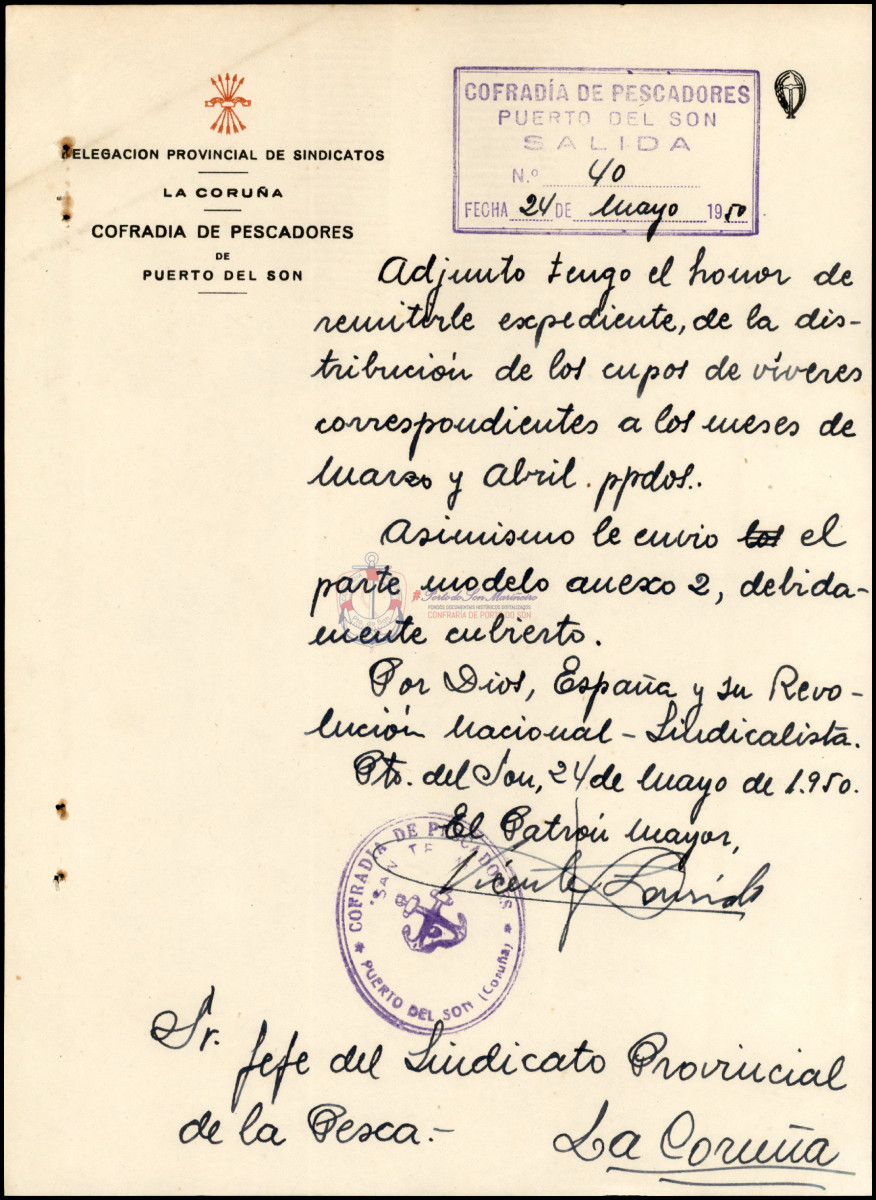 DELEGACION PROVINCIAL DE SINDICATOS
LA CORUÑA
COFRADIA DE PESCADORES
DE
PUERTO DEL SON
COFRADÍA DE PESCADORES
PUERTO DEL SON
SALIDA
N.º 40
FECHA 24 DE Mayo 1950
Adjunto tengo el honor de
remitirle expediente, de la dis-
tribución de los cupos de víveres
correspondientes a los meses de
Marzo y Abril ppdos..
Asimismo le envio los el
parte modelo anexo 2, debida-
mente cubierto.
#PortodoSonMariñeiro
FONDOS DOCUMENTAIS HISTÓRICOS DIXITALIZADOS
CONFRARÍA DE PORTO DO SON
Por Dios, España y su Revo-
lución Nacional-Sindicalista.
Pto. del Son, 24 de Mayo de 1.950.
El Patrón Mayor,
Vicente
COFRADÍA DE PESCADORES
PUERTO DEL SON (Coruña)
Sr.
Jefe del Sindicato Provincial
de la Pesca.-
La Coruña